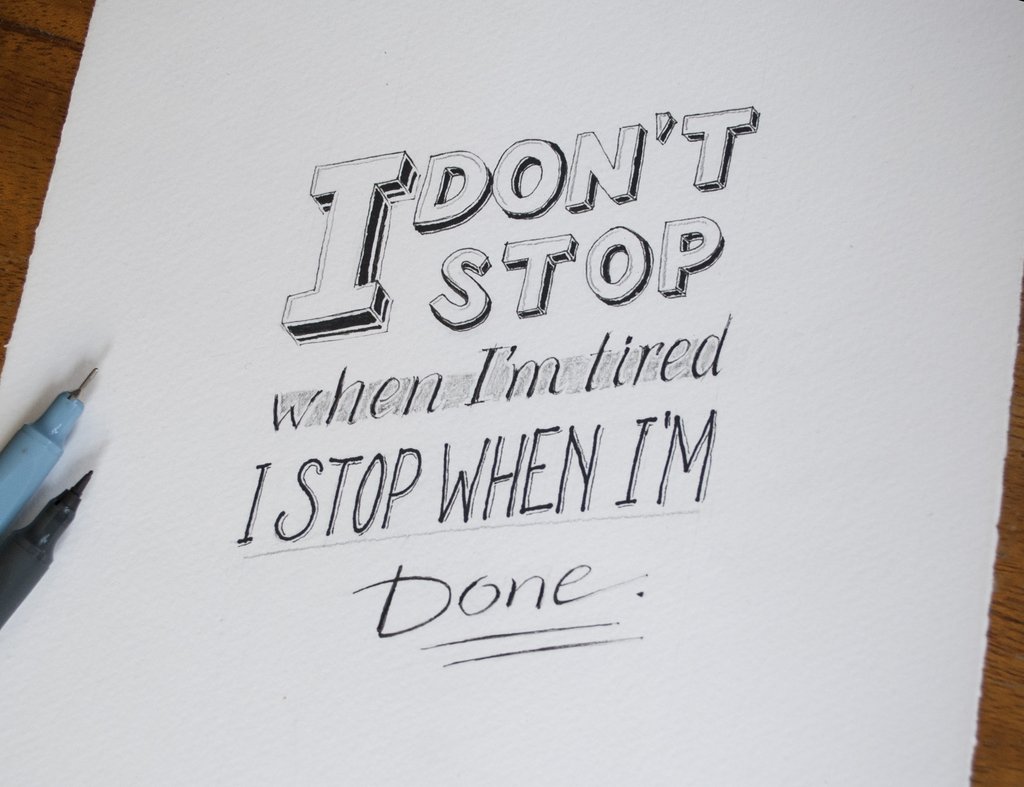 I DON'T
STOP
when I'm tired
I STOP WHEN I'M
Done.